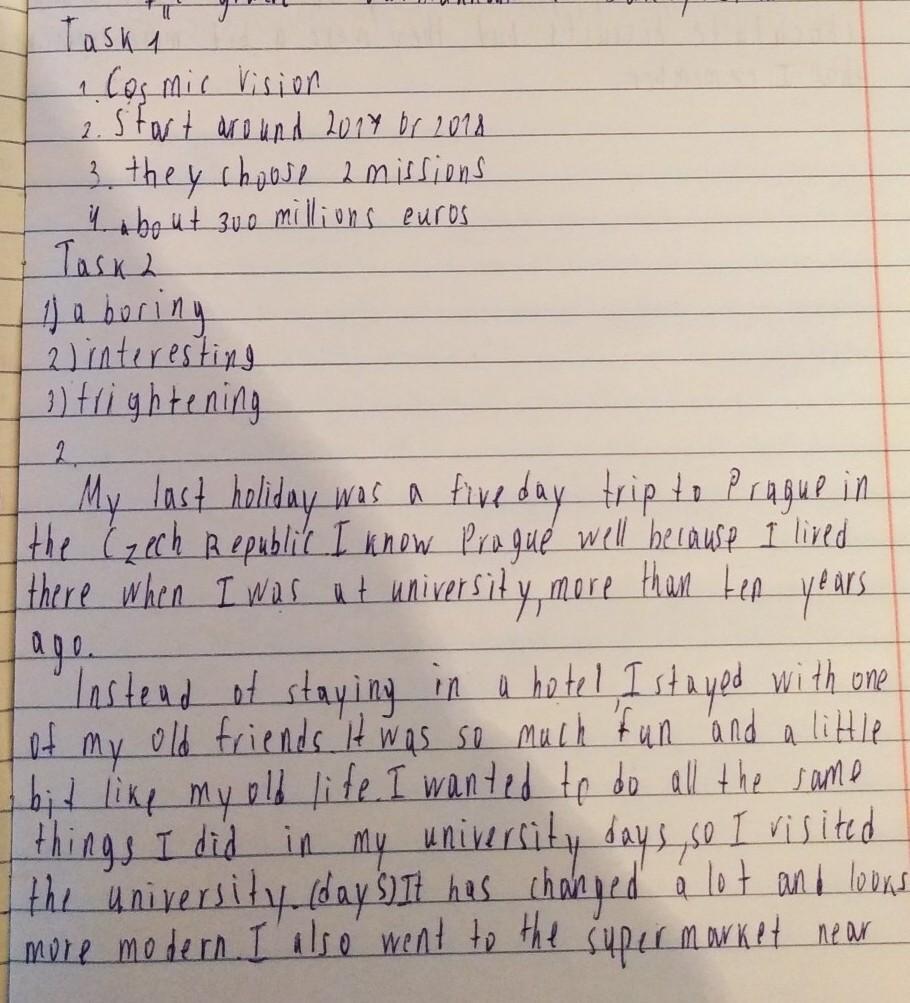 Task 1
1. Cosmic Vision
2. Start around 2017 or 2018
3. they choose 2 missions
4. about 300 millions euros
Task 2
1) a boring
2) interesting
3) frightening
2.
My last holiday was a five day trip to Prague in
the Czech Republic I know Prague well because I lived
there when I was at university, more than ten years
ago.
Instead of staying in a hotel, I stayed with one
of my old friends. It was so much fun and a little
bit like my old life. I wanted to do all the same
things I did in my university days, so I visited
the university. (days) It has changed a lot and looks
more modern. I also went to the supermarket near